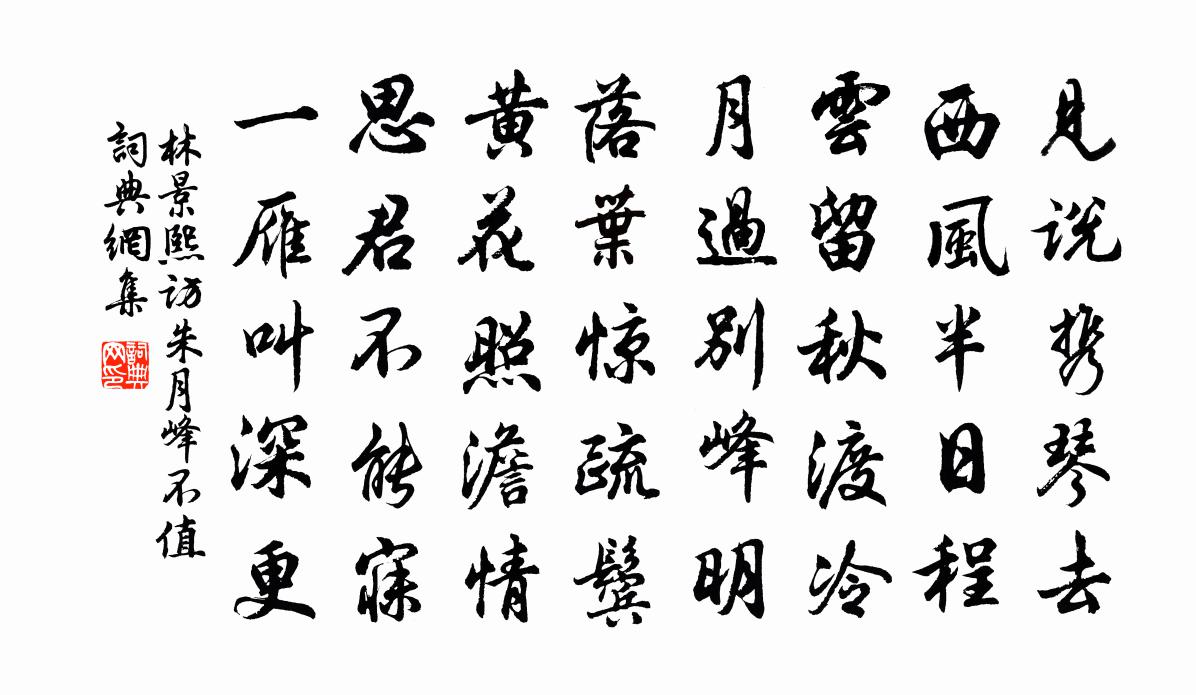 見说携琴去
西風半日程
雲留秋渡冷
月過别峰明
落葉惊疏鬓
黄花照澹情
思君不能寐
一雁叫深更
林景熙访朱月峰不值
詞典網集
詞典網印